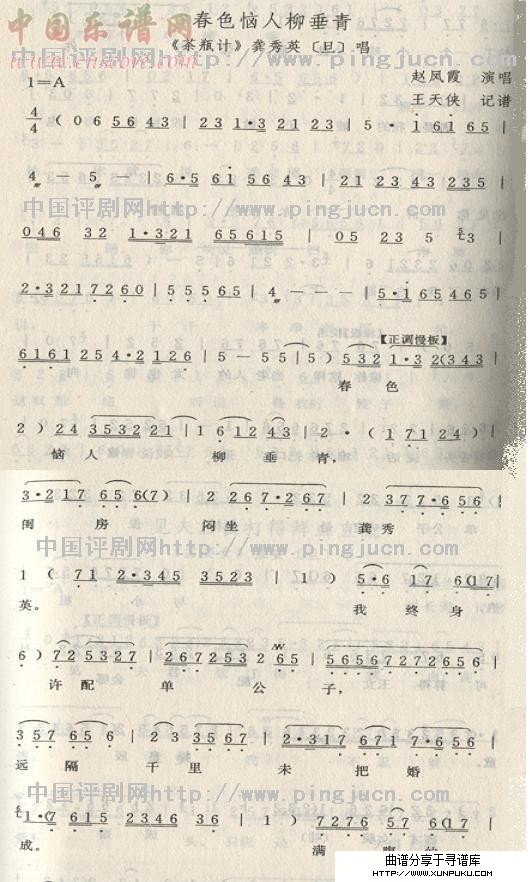 中国乐谱网
www.cnscore.com
春色恼人柳垂青
《茶瓶计》龚秀英〔旦〕唱
1=A
赵凤霞 演唱
王天侠 记谱
中国评剧网http://www.pingjucn.com
4/4 ( 0 6 5 6 4 3 | 2 3 1·3 2 1 2 3 | 5 · 1 6 1 6 5 |
4 — 5 — | 6·5 6 1 5 6 4 3 | 2 1 2 3 4 3 2 3 5 |
中国评剧网http://www.pingjucn.com
0 4 6 3 2 1·3 2 1 6 5 6 1 5 | 0 5 2 3 5 3 |
2·3 2 1 7 2 6 0 | 5 5 5 6 5 | 4 — — — | 5·1 6 5 4 6 5 |
中国评剧网http://www.pingjucn.com
【正调慢板】
6 1 6 1 2 5 4·2 1 2 6 | 5 — 5 5 | 5 ) 5 3 2 1·3 2 (3 4 3
春色
2 ) 2 4 3 5 3 2 2 1 | 1 6 1 2 4 3 | 2 · ( 1 7 1 2 4 ) |
恼人 柳垂青,
中国评剧网http://www.pingjucn.com
3·2 1 7 6 5 6 (7) | 2 2 6 7·2 6 7 | 2 3 7 7·6 5 6 |
闺房 闷坐 龚秀
中国评剧网http://www.pingjucn.com
1 ( 7 1 2·3 4 5 3 5 2 3 | 1 ) 5·6 1 7 6 (1 7 |
英。 我终身
6 ) 7 2 5 3 2 7 | 2 6 7 2 5 3 2 6 5 | 5 6 5 6 7 2 7 2 6 5 6 |
许配 单公子,
中国评剧网http://www.pingjucn.com
3 5 7 6 5 6 | 2 3 3 5 6 7 | 2·3 1 7 6 7 1 7·6 5 6 |
远隔 千里 未把婚
中国评剧网http://www.pingjucn.com
1·(7 6 1 5 2 3 4 6 3 6 | 1 ) 7 2 7 6 5 7 6 (1 7 |
成。 满
曲谱分享于寻谱库
HTTP://WWW.XUNPUKU.COM